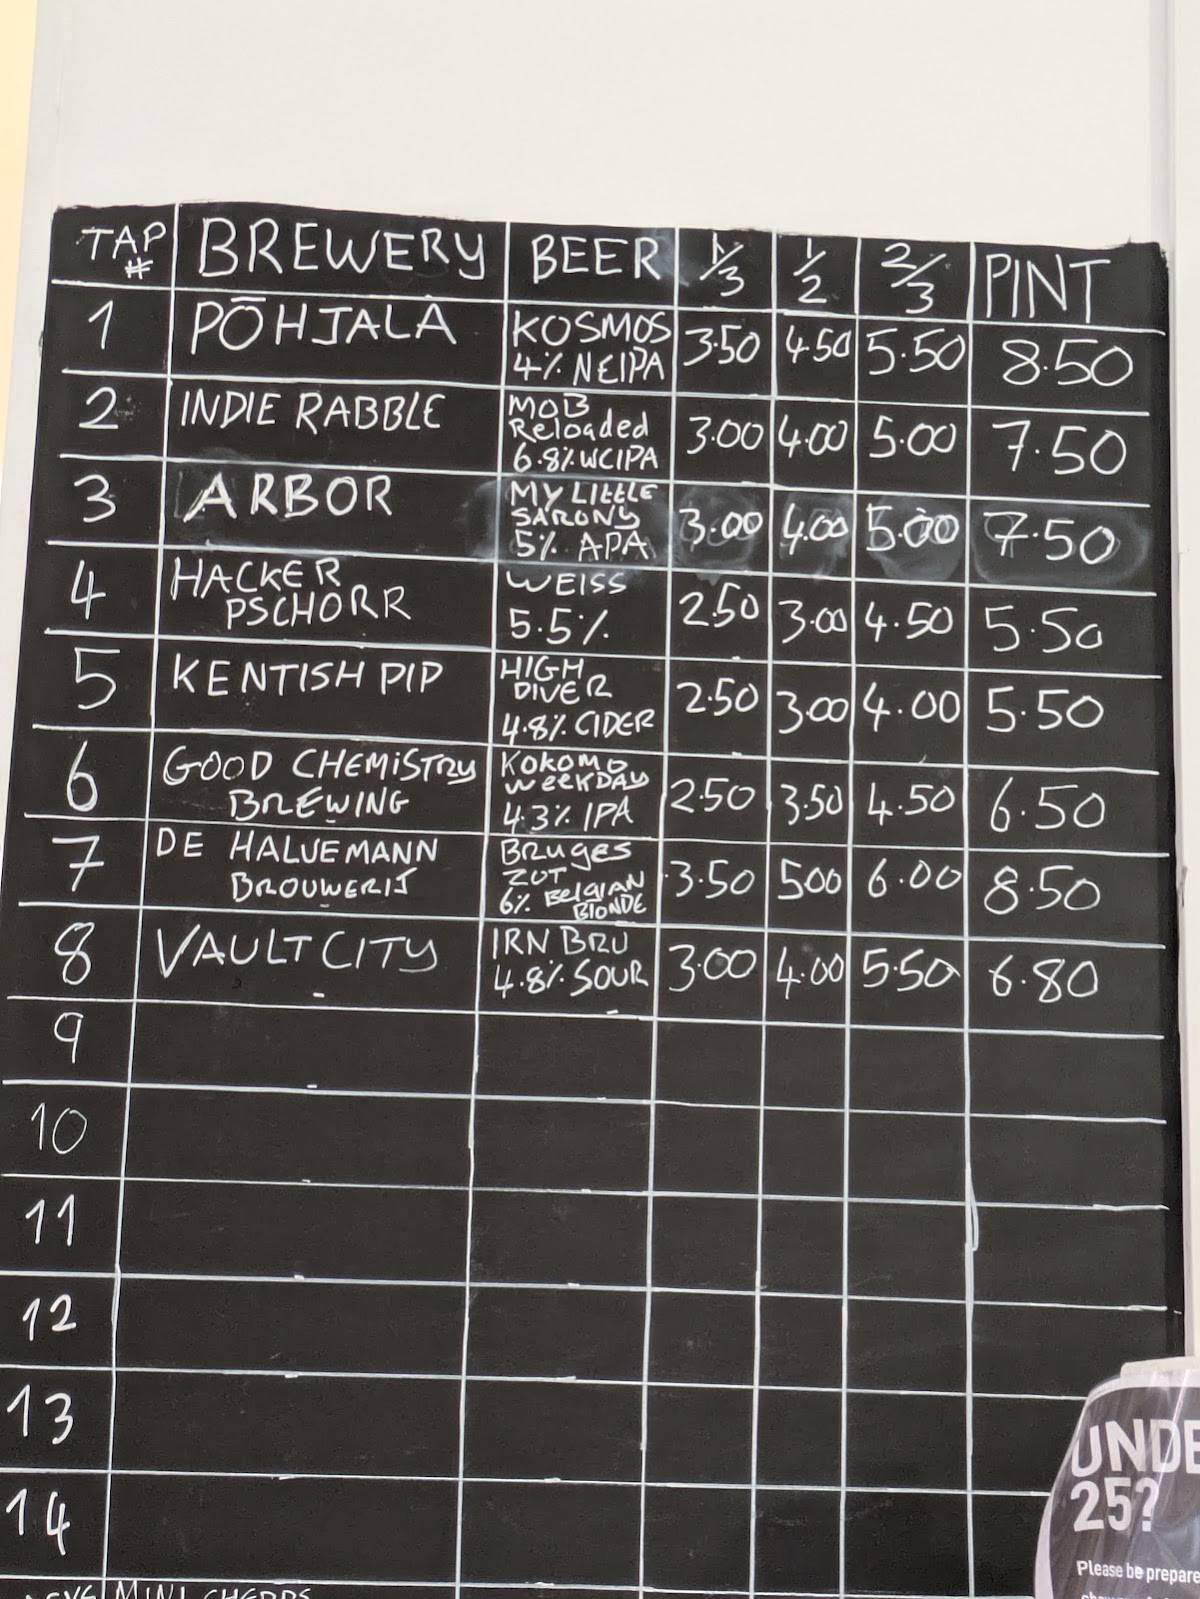 TAP # BREWERY BEER 1/3 1/2 2/3 PINT
1 PŌHJALA KOSMOS 3.50 4.50 5.50 8.50
4% NEIPA
2 INDIE RABBLE MOB 3.00 4.00 5.00 7.50
Reloaded
6.8% WCIPA
3 ARBOR MY LITTLE 3.00 4.00 5.00 7.50
SARONY
5% APA
4 HACKER WEISS 2.50 3.00 4.50 5.50
PSCHORR 5.5%
5 KENTISH PIP HIGH 2.50 3.00 4.00 5.50
DIVER
4.8% CIDER
6 GOOD CHEMISTRY KOKOMO 2.50 3.50 4.50 6.50
BREWING WeeKDAY
4.3% IPA
7 DE HALVEMANN BRUGES 3.50 500 6.00 8.50
BROUWERIJ ZOT
6% BELGIAN
BLONDE
8 VAULT CITY IRN BRU 3.00 4.00 5.50 6.80
4.8% SOUR
9
10
11
12
13
14
MINI CHEDDS
UNDE
25?
Please be prepare